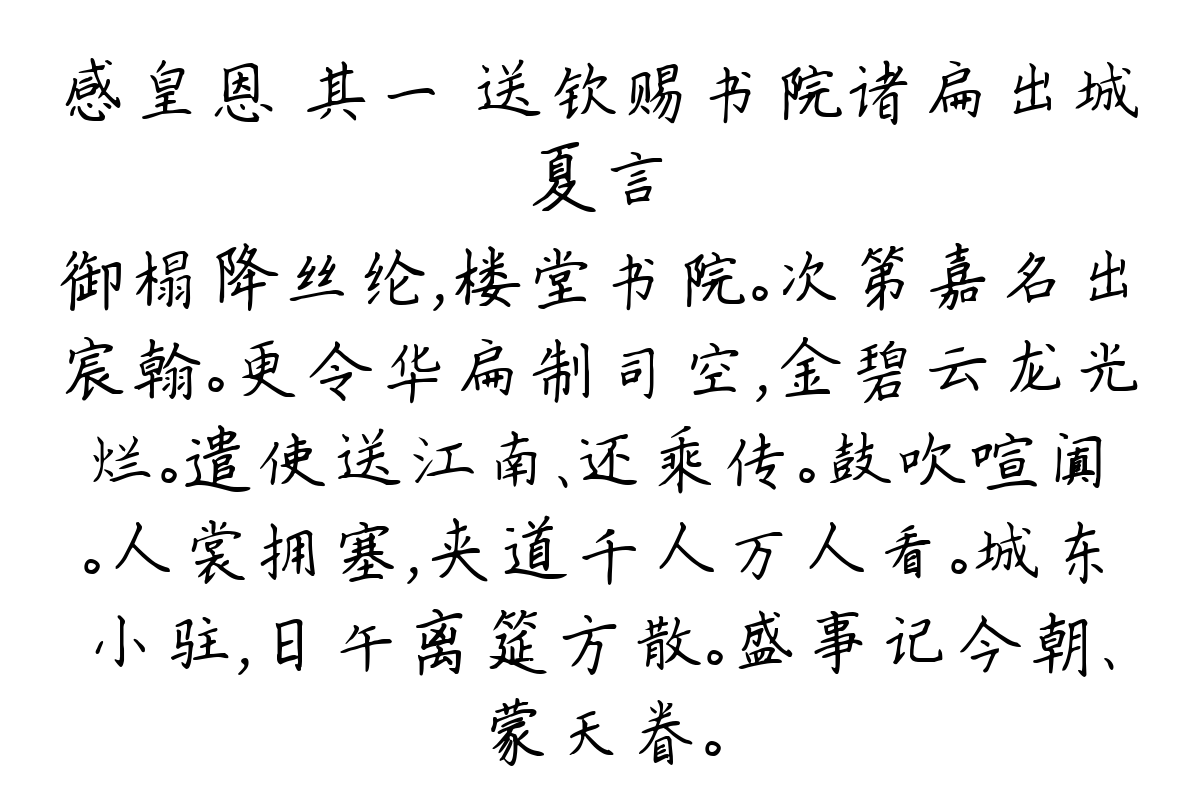 感皇恩 其一 送钦赐书院诸扁出城
夏言
御榻降丝纶,楼堂书院。次第嘉名出
宸翰。更令华扁制司空,金碧云龙光
烂。遣使送江南、还乘传。鼓吹喧阗
。人裳拥塞,夹道千人万人看。城东
小驻,日午离筵方散。盛事记今朝、
蒙天眷。